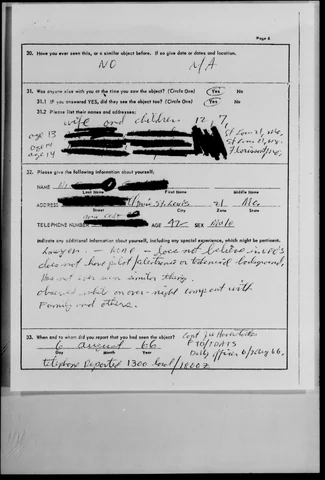 Page 6
30. Have you ever seen this, or a similar object before. If so give date or dates and location.
NO N/A
31. Was anyone else with you at the time you saw the object? (Circle One) Yes No
31.1 If you answered YES, did they see the object too? (Circle One) Yes No
31.2 Please list their names and addresses:
wife and children 12, 7,
age 13
age 14
32. Please give the following information about yourself:
NAME
Last Name First Name Middle Name
ADDRESS St. Louis 21 Mo.
Street City Zone State
TELEPHONE NUMBER AGE 42 SEX Male
Indicate any additional information about yourself, including any special experience, which might be pertinent.
Lawyer. — does not believe in
does not have pilot/ or technical background,
Has not ever seen similar thing.
observed while on over-night campout with
Family and others.
33. When and to whom did you report that you had seen the object?
6 August 66
Day Month Year
Duty officer 6/Aug 66.
telephone Reported 1300 local/1800Z